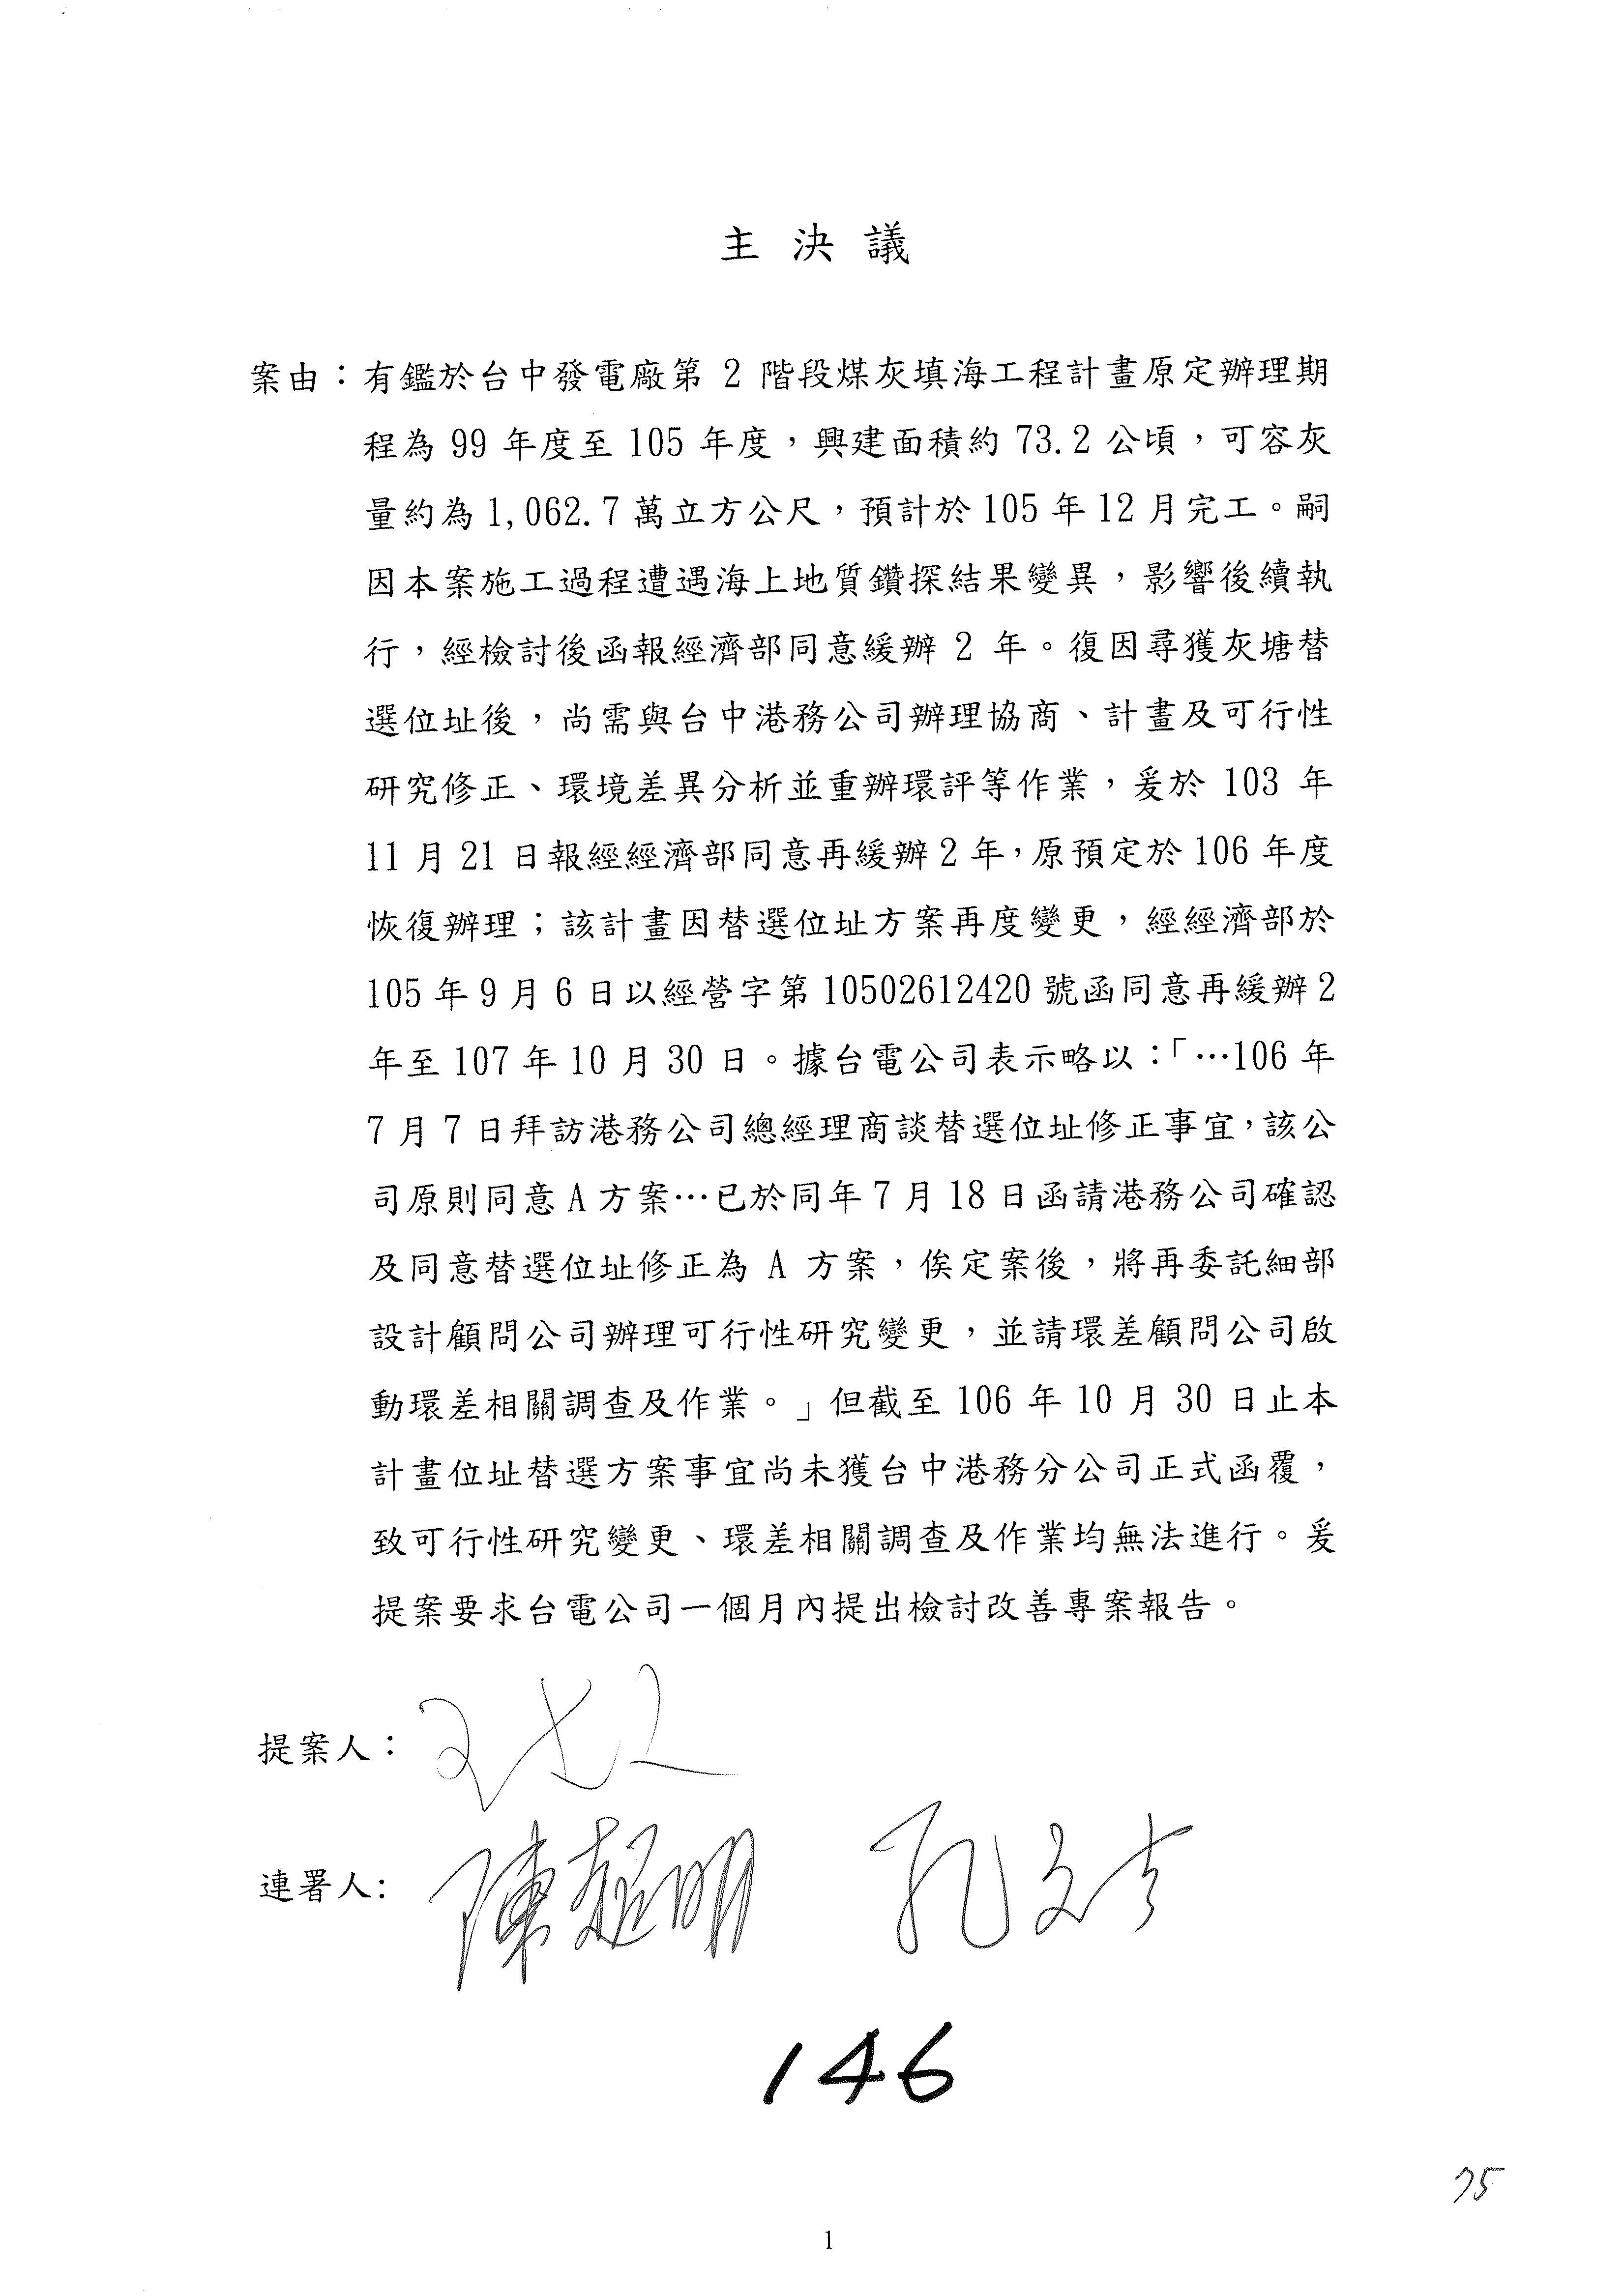 主決議
案由：有鑑於台中發電廠第 2 階段煤灰填海工程計畫原定辦理期
程為 99 年度至 105 年度，興建面積約 73.2 公頃，可容灰
量約為 1,062.7 萬立方公尺，預計於 105 年 12 月完工。嗣
因本案施工過程遭遇海上地質鑽探結果變異，影響後續執
行，經檢討後函報經濟部同意緩辦 2 年。復因尋獲灰塘替
選位址後，尚需與台中港務公司辦理協商、計畫及可行性
研究修正、環境差異分析並重辦環評等作業，爰於 103 年
11 月 21 日報經經濟部同意再緩辦 2 年，原預定於 106 年度
恢復辦理；該計畫因替選位址方案再度變更，經經濟部於
105 年 9 月 6 日以經營字第 10502612420 號函同意再緩辦 2
年至 107 年 10 月 30 日。據台電公司表示略以：「…106 年
7 月 7 日拜訪港務公司總經理商談替選位址修正事宜，該公
司原則同意 A 方案…已於同年 7 月 18 日函請港務公司確認
及同意替選位址修正為 A 方案，俟定案後，將再委託細部
設計顧問公司辦理可行性研究變更，並請環差顧問公司啟
動環差相關調查及作業。」但截至 106 年 10 月 30 日止本
計畫位址替選方案事宜尚未獲台中港務分公司正式函覆，
致可行性研究變更、環差相關調查及作業均無法進行。爰
提案要求台電公司一個月內提出檢討改善專案報告。
提案人：
連署人: 陳超明 孔文吉
146
75
1